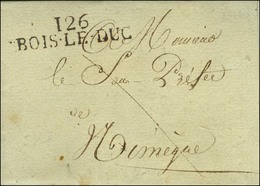 126
BOIS-LE-DUC
A Monsieur
le Sous Préfet
de
Nimègue